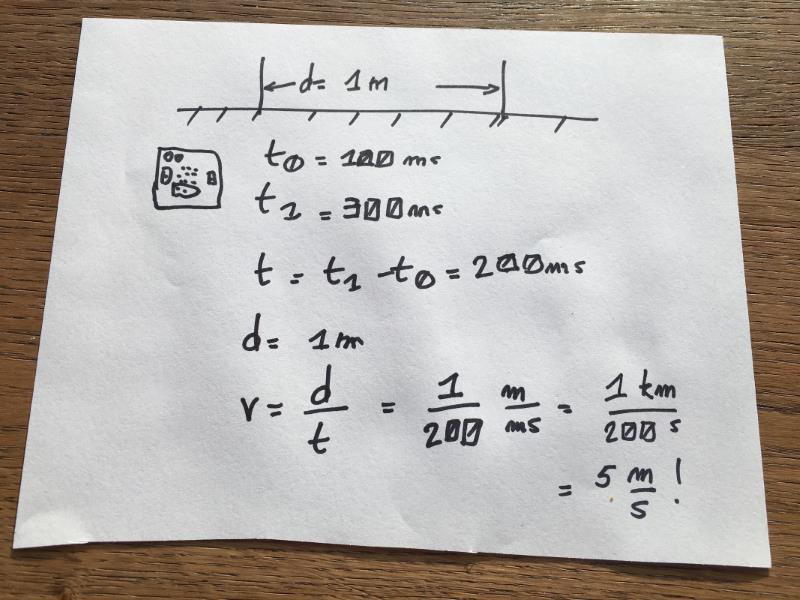 d= 1m
t0 = 100 ms
t1 = 300 ms
t = t1 - t0 = 200 ms
d= 1m
v = d/t = 1/200 m/ms = 1 km/200 s
= 5 m/s !